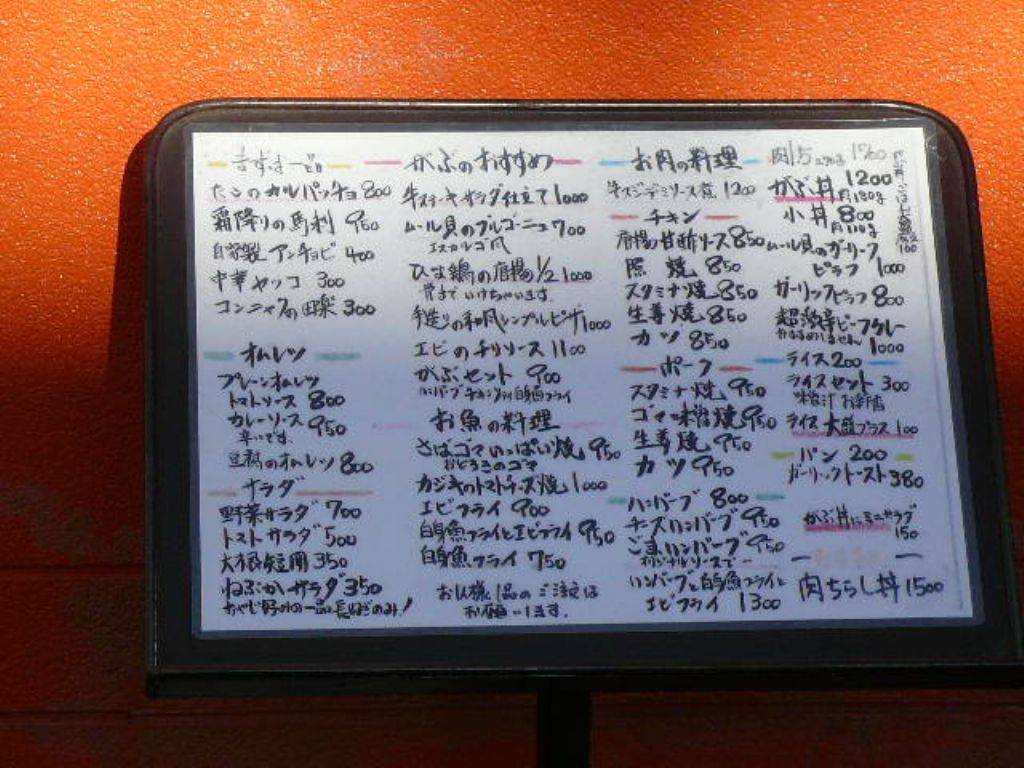 まずは一品
たこのカルパッチョ 800
霜降りの馬刺 950
自家製アンチョビ 400
中華ヤッコ 300
コンニャクの田楽 300
オムレツ
プレーンオムレツ
トマトソース 800
カレーソース 950
辛いです
豆腐のオムレツ 800
サラダ
野菜サラダ 700
トマトサラダ 500
大根短冊 350
ねぶかサラダ 350
がぶのおすすめ
牛ステーキサラダ仕立て 1000
ムール貝のブルゴーニュ 700
エスカルゴ風
ひな鶏の唐揚 1/2 1000
骨までいけちゃいます
手造りの和風シンプルピザ 1000
エビのチリソース 1100
がぶセット 900
ハンバーグ チキンカツ 白身魚フライ
お魚の料理
さばゴマいっぱい焼 950
おどろきのゴマ
カジキのトマトチーズ焼 1000
エビフライ 900
白身魚フライとエビフライ 950
白身魚フライ 750
お1人様1品のご注文は
お願いします。
お肉の料理
牛スジデミソース煮 1200
チキン
唐揚甘酢ソース 850
照焼 850
スタミナ焼 850
生姜焼 850
カツ 850
ポーク
スタミナ焼 950
ゴマ味噌焼 950
生姜焼 950
カツ 950
ハンバーグ 800
チーズハンバーグ 950
ごまハンバーグ 950
オリジナルソースで
ハンバーグと白身魚フライと
エビフライ 1300
がぶ丼 1200
肉180g
小丼 800
肉110g
ムール貝のガーリック
ピラフ 1000
ガーリックピラフ 800
超激辛ビーフカレー
1000
ライス 200
ライスセット 300
味噌汁 お新香
ライス大盛プラス 100
パン 200
ガーリックトースト 380
がぶ丼にミニサラダ
150
肉ちらし丼 1500